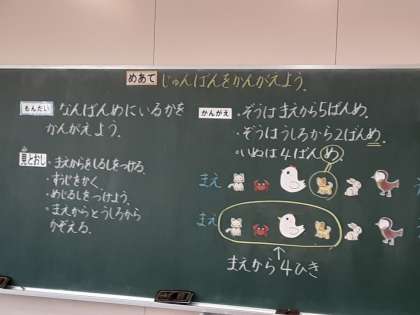 めあて じゅんばんをかんがえよう。
もんだい なんばんめにいるかを
かんがえよう。
見とおし ・まえからをしるしをつける。
・すうじをかく。
・めじるしをつけよう。
・まえからとうしろから
かぞえる。
かんがえ ・ぞうは まえから5ばんめ。
・ぞうはうしろから2ばんめ。
・いぬは4ばんめ。
まえ
まえ
↑
まえから4ひき